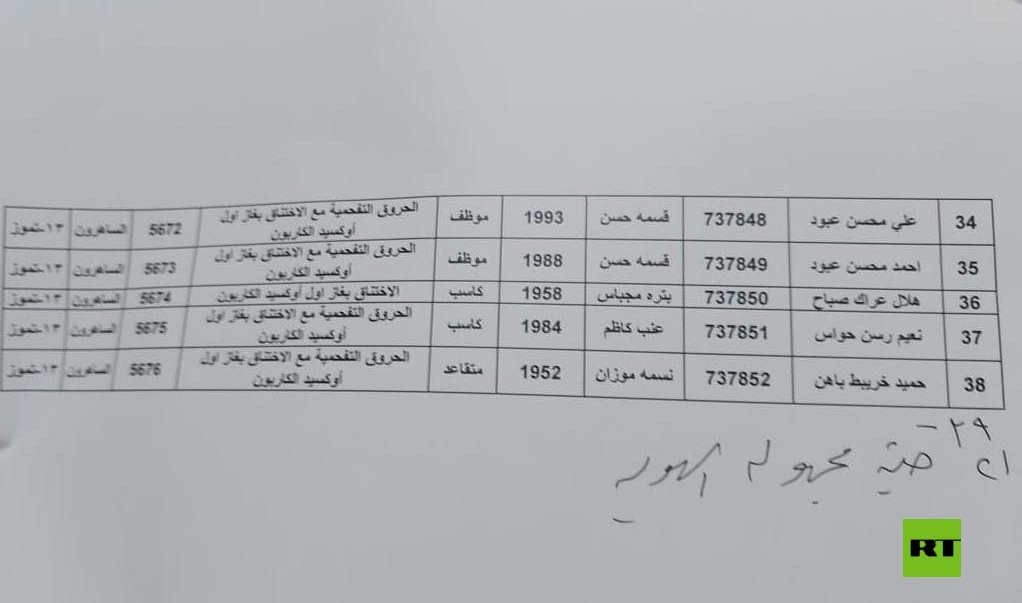 34 علي محسن عبود 737848 قسمه حسن 1993 موظف الحروق التفحمية مع الاختناق بغاز اول أوكسيد الكاربون 5672 الساهرون ١٣-تموز
35 احمد محسن عبود 737849 قسمه حسن 1988 موظف الحروق التفحمية مع الاختناق بغاز اول أوكسيد الكاربون 5673 الساهرون ١٣-تموز
36 هلال عراك صباح 737850 بتره مجباس 1958 كاسب الاختناق بغاز اول أوكسيد الكاربون 5674 الساهرون ١٣-تموز
37 نعيم رسن حواس 737851 عنب كاظم 1984 كاسب الحروق التفحمية مع الاختناق بغاز اول أوكسيد الكاربون 5675 الساهرون ١٣-تموز
38 حميد خريبط باهن 737852 نسمه موزان 1952 متقاعد الحروق التفحمية مع الاختناق بغاز اول أوكسيد الكاربون 5676 الساهرون ١٣-تموز
٢٩ -
جثة مجهولة الهوية
RT